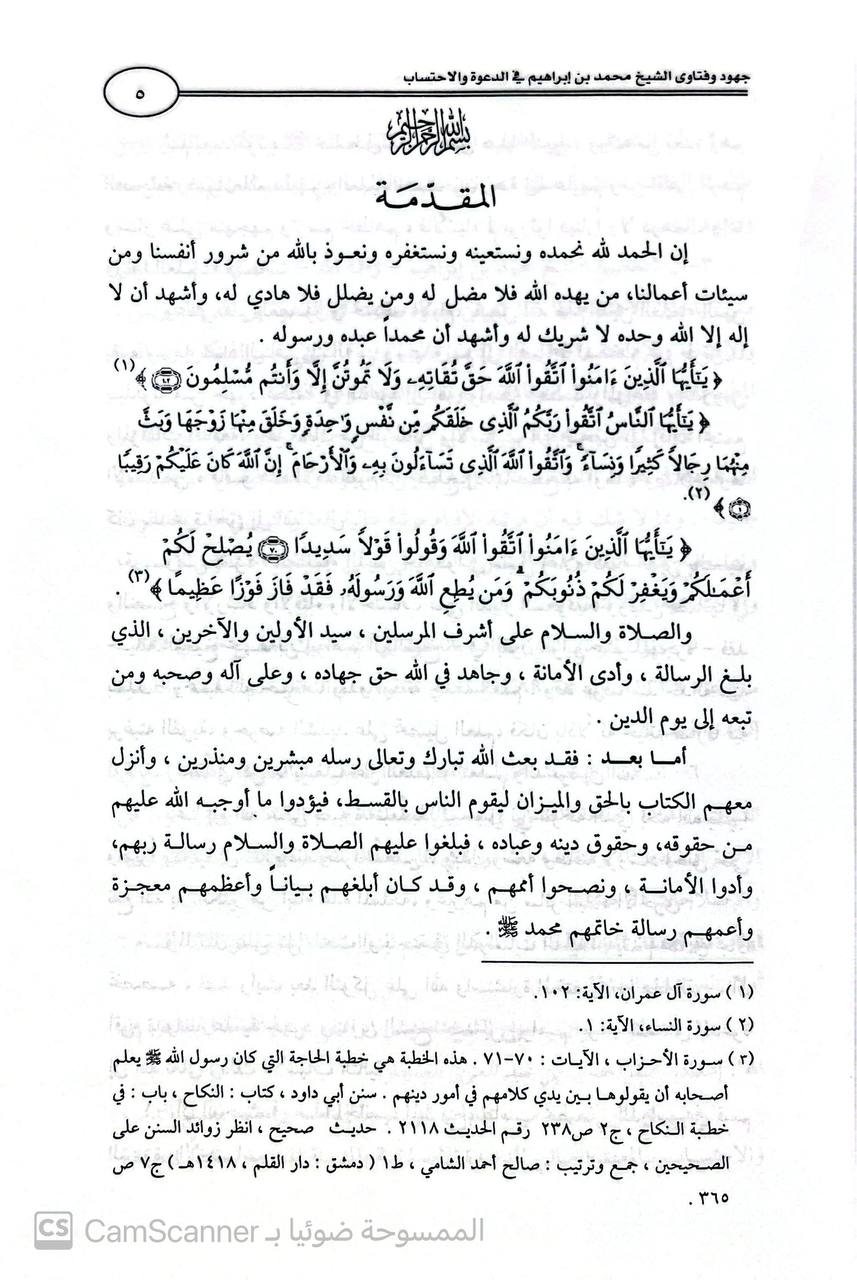 جهود وفتاوى الشيخ محمد بن إبراهيم في الدعوة والاحتساب
٥
بسم الله الرحمن الرحيم
المقدّمة
إن الحمد لله نحمده ونستعينه ونستغفره ونعوذ بالله من شرور أنفسنا ومن
سيئات أعمالنا، من يهده الله فلا مضل له ومن يضلل فلا هادي له، وأشهد أن لا
إله إلا الله وحده لا شريك له وأشهد أن محمداً عبده ورسوله .
﴿ يَٰٓأَيُّهَا ٱلَّذِينَ ءَامَنُوا۟ ٱتَّقُوا۟ ٱللَّهَ حَقَّ تُقَاتِهِۦ وَلَا تَمُوتُنَّ إِلَّا وَأَنتُم مُّسْلِمُونَ ١٠٢ ﴾(١)
﴿ يَٰٓأَيُّهَا ٱلنَّاسُ ٱتَّقُوا۟ رَبَّكُمُ ٱلَّذِى خَلَقَكُم مِّن نَّفْسٍ وَٰحِدَةٍ وَخَلَقَ مِنْهَا زَوْجَهَا وَبَثَّ
مِنْهُمَا رِجَالًا كَثِيرًا وَنِسَآءً ۚ وَٱتَّقُوا۟ ٱللَّهَ ٱلَّذِى تَسَآءَلُونَ بِهِۦ وَٱلْأَرْحَامَ ۚ إِنَّ ٱللَّهَ كَانَ عَلَيْكُمْ رَقِيبًا
١ ﴾(٢).
﴿ يَٰٓأَيُّهَا ٱلَّذِينَ ءَامَنُوا۟ ٱتَّقُوا۟ ٱللَّهَ وَقُولُوا۟ قَوْلًا سَدِيدًا ٧٠ يُصْلِحْ لَكُمْ
أَعْمَٰلَكُمْ وَيَغْفِرْ لَكُمْ ذُنُوبَكُمْ ۗ وَمَن يُطِعِ ٱللَّهَ وَرَسُولَهُۥ فَقَدْ فَازَ فَوْزًا عَظِيمًا ﴾(٣) .
والصلاة والسلام على أشرف المرسلين ، سيد الأولين والآخرين ، الذي
بلغ الرسالة ، وأدى الأمانة ، وجاهد في الله حق جهاده ، وعلى آله وصحبه ومن
تبعه إلى يوم الدين .
أما بعد : فقد بعث الله تبارك وتعالى رسله مبشرين ومنذرين ، وأنزل
معهم الكتاب بالحق والميزان ليقوم الناس بالقسط، فيؤدوا ما أوجبه الله عليهم
من حقوقه، وحقوق دينه وعباده ، فبلغوا عليهم الصلاة والسلام رسالة ربهم،
وأدوا الأمانة ، ونصحوا أممهم ، وقد كان أبلغهم بياناً وأعظمهم معجزة
وأعمهم رسالة خاتمهم محمد ﷺ .
(١) سورة آل عمران، الآية: ١٠٢.
(٢) سورة النساء، الآية: ١.
(٣) سورة الأحزاب ، الآيات : ٧٠-٧١ . هذه الخطبة هي خطبة الحاجة التي كان رسول الله ﷺ يعلم
أصحابه أن يقولوها بين يدي كلامهم في أمور دينهم . سنن أبي داود ، كتاب : النكاح ، باب : في
خطبة النكاح ، ج٢ ص٢٣٨ رقم الحديث ٢١١٨ . حديث صحيح ، انظر زوائد السنن على
الصحيحين ، جمع وترتيب : صالح أحمد الشامي ، ط١ ( دمشق : دار القلم ، ١٤١٨هـ ) ج٧ ص
٣٦٥ .
CS CamScanner الممسوحة ضوئيا بـ